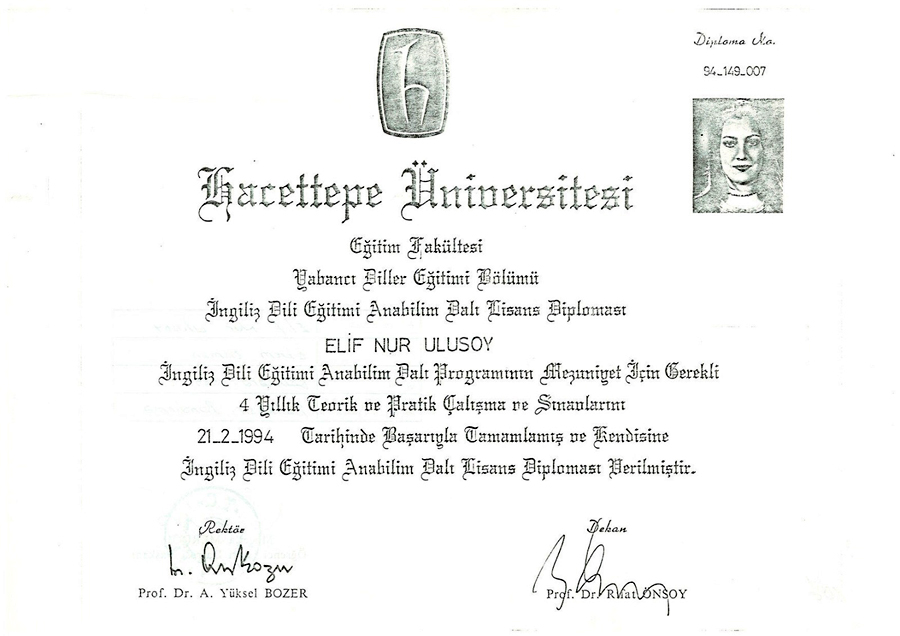 Diploma No.
94_149_007
Hacettepe Üniversitesi
Eğitim Fakültesi
Yabancı Diller Eğitimi Bölümü
İngiliz Dili Eğitimi Anabilim Dalı Lisans Diploması
ELİF NUR ULUSOY
İngiliz Dili Eğitimi Anabilim Dalı Programının Mezuniyet İçin Gerekli
4 Yıllık Teorik ve Pratik Çalışma ve Sınavlarını
21_2_1994 Tarihinde Başarıyla Tamamlamış ve Kendisine
İngiliz Dili Eğitimi Anabilim Dalı Lisans Diploması Verilmiştir.
Rektör
Dekan
Prof. Dr. A. Yüksel BOZER
Prof. Dr. ÖNSOY